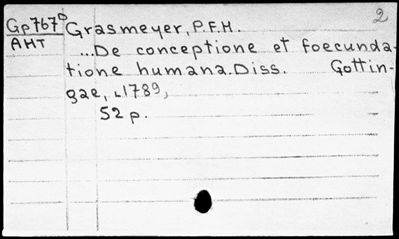 2
Gp767° Grasmeyer, P.F.H.
AHT ...De conceptione et foecunda-
tione humana. Diss. Gottin-
gae, 1789,
52 p.